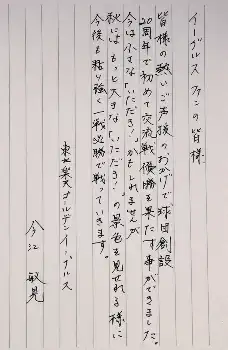 イーグルスファンの皆様
皆様の熱いご声援のおかげで球団創設
20周年で初めて交流戦優勝を果たす事ができました。
今は小さな「いただき!」かもしれませんが
秋にはもっと大きな「いただき!」の景色を見せれる様に
今後も粘り強く一戦必勝で戦っていきます。
東北楽天ゴールデンイーグルス
今江 敏晃